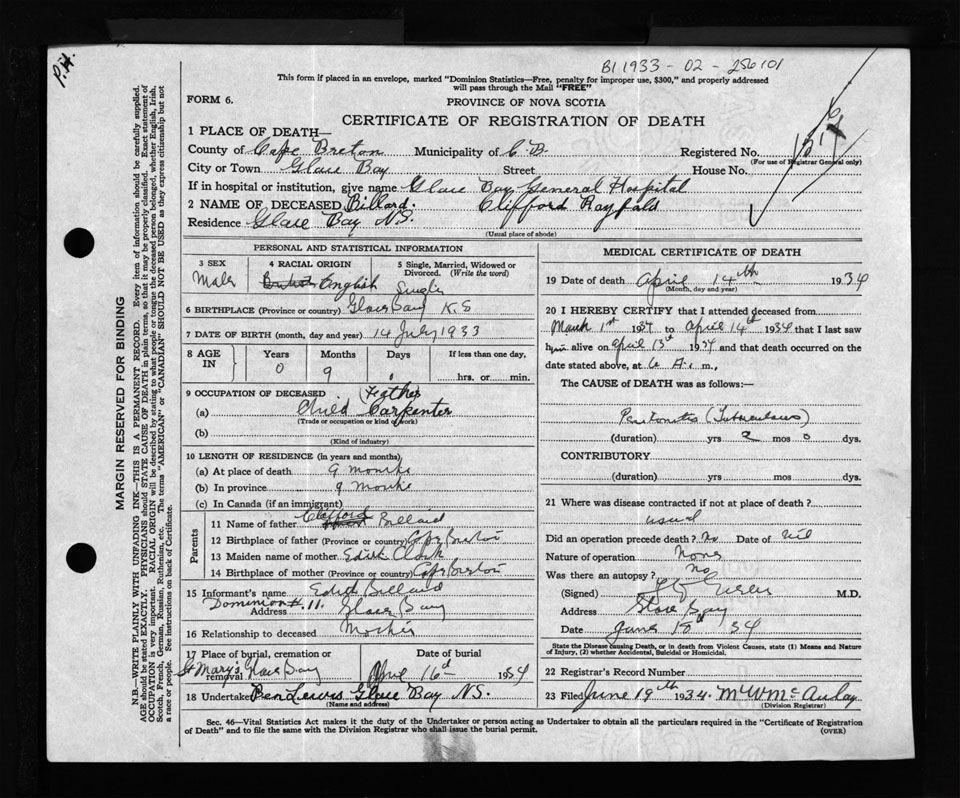 P.H.
B1 1933 - 02 - 256101
This form if placed in an envelope, marked "Dominion Statistics—Free, penalty for improper use, $300," and properly addressed
will pass through the Mail "FREE"
FORM 6.
PROVINCE OF NOVA SCOTIA
CERTIFICATE OF REGISTRATION OF DEATH
1 PLACE OF DEATH—
County of Cape Breton Municipality of C B Registered No.
(For use of Registrar General only)
City or Town Glace Bay Street House No.
If in hospital or institution, give name Glace Bay General Hospital
2 NAME OF DECEASED Billard. Clifford Rayfald
Residence Glace Bay N.S.
(Usual place of abode)
PERSONAL AND STATISTICAL INFORMATION
3 SEX
Male
4 RACIAL ORIGIN
English
5 Single, Married, Widowed or Divorced. (Write the word)
Single
6 BIRTHPLACE (Province or country) Glace Bay N.S
7 DATE OF BIRTH (month, day and year) 14 July 1933
8 AGE IN
Years Months Days If less than one day,
0 9 hrs. or min.
9 OCCUPATION OF DECEASED (Father
(a) Child Carpenter
(Trade or occupation or kind of work)
(b)
(Kind of industry)
10 LENGTH OF RESIDENCE (in years and months)
(a) At place of death 9 months
(b) In province 9 months
(c) In Canada (if an immigrant)
Parents
11 Name of father Clifford Billard
12 Birthplace of father (Province or country) Cape Breton
13 Maiden name of mother Edith Clark
14 Birthplace of mother (Province or country) Cape Breton
15 Informant's name Edith Billard
Address Dominion #. 11. Glace Bay
16 Relationship to deceased Mother
17 Place of burial, cremation or removal Date of burial
St Mary's Glace Bay April 16th 1934
18 Undertaker Ben Lewis Glace Bay N.S.
(Name and address)
MEDICAL CERTIFICATE OF DEATH
19 Date of death April 14th 1934
(Month, day and year)
20 I HEREBY CERTIFY that I attended deceased from
March 1st 1934 to April 14th 1934 that I last saw
him alive on April 13th 1934 and that death occurred on the
date stated above, at 6 A. m.,
The CAUSE OF DEATH was as follows:
Peritonitis (Tuberculous)
(duration) yrs 2 mos 0 dys.
CONTRIBUTORY
(duration) yrs mos dys.
21 Where was disease contracted if not at place of death?
usual
Did an operation precede death? No Date of nil
Nature of operation None
Was there an autopsy? No
(Signed) Green M.D.
Address Glace Bay
Date June 18th 34
State the Disease causing Death, or in death from Violent Causes, state (1) Means and Nature
of Injury, (2) whether Accidental, Suicidal or Homicidal.
22 Registrar's Record Number
23 Filed June 19th 1934. McWMcAulay
(Division Registrar)
Sec. 46—Vital Statistics Act makes it the duty of the Undertaker or person acting as Undertaker to obtain all the particulars required in the "Certificate of Registration
of Death" and to file the same with the Division Registrar who shall issue the burial permit.
(OVER)
MARGIN RESERVED FOR BINDING
N.B.—WRITE PLAINLY WITH UNFADING INK—THIS IS A PERMANENT RECORD. Every item of information should be carefully supplied.
AGE should be stated EXACTLY. PHYSICIANS should STATE CAUSE OF DEATH in plain terms, so that it may be properly classified. Exact statement of
OCCUPATION is very important. RACIAL ORIGIN will be described by stating to what people or tongue the deceased person belonged, whether English, Irish,
Scotch, French, German, Russian, Ruthenian, etc. The terms "AMERICAN" or "CANADIAN" SHOULD NOT BE USED as they express citizenship but not
a race or people. See instructions on back of Certificate.